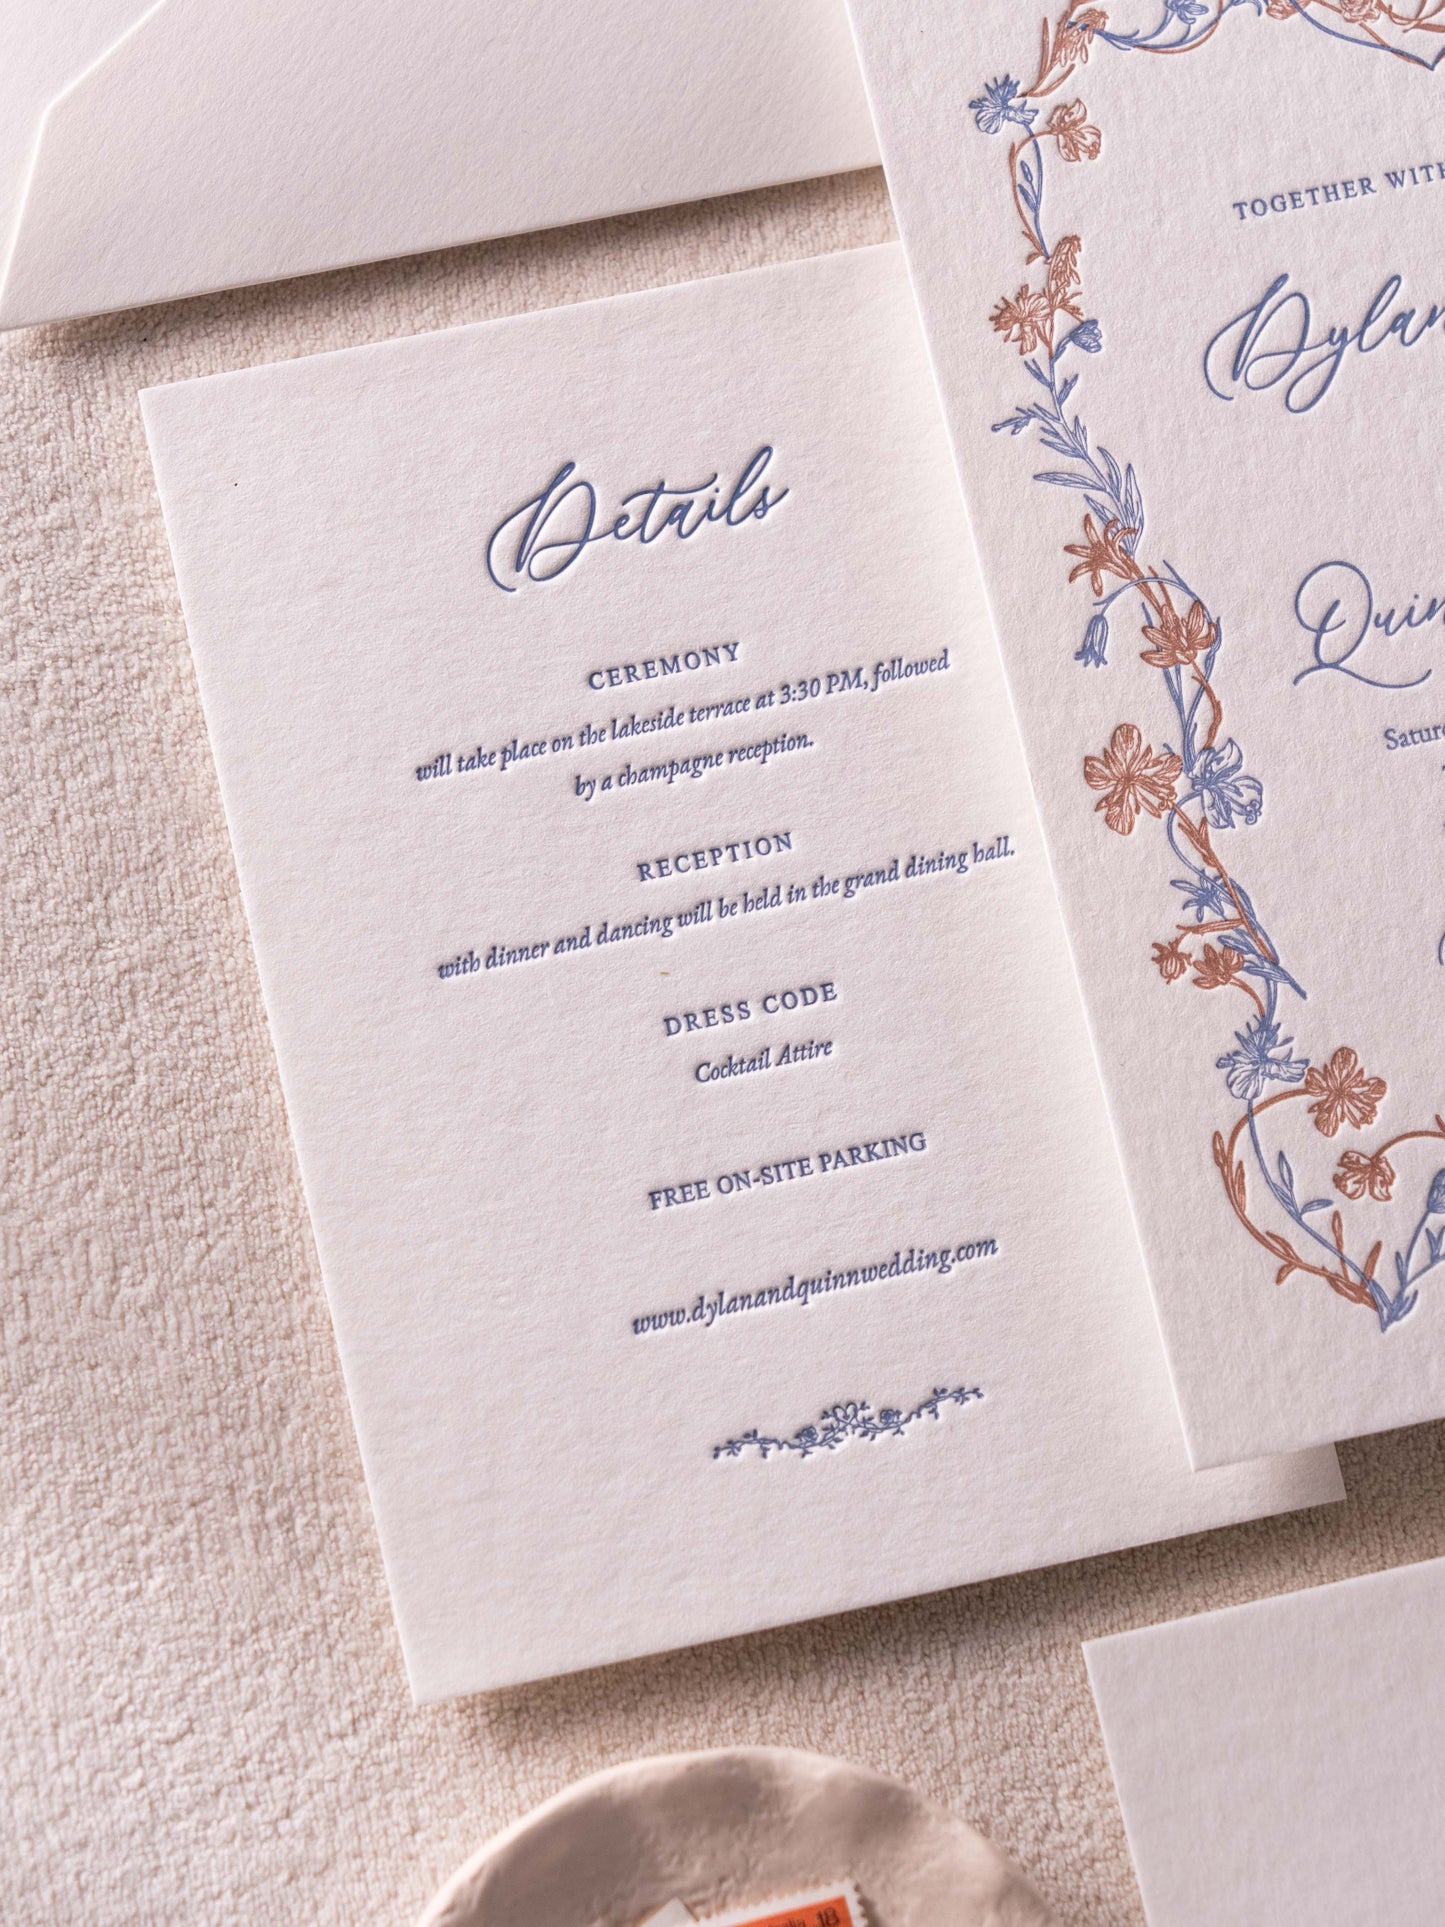 Details
CEREMONY
will take place on the lakeside terrace at 3:30 PM, followed
by a champagne reception.
RECEPTION
with dinner and dancing will be held in the grand dining hall.
DRESS CODE
Cocktail Attire
FREE ON-SITE PARKING
www.dylanandquinnwedding.com
TOGETHER WITH
Dylan
18